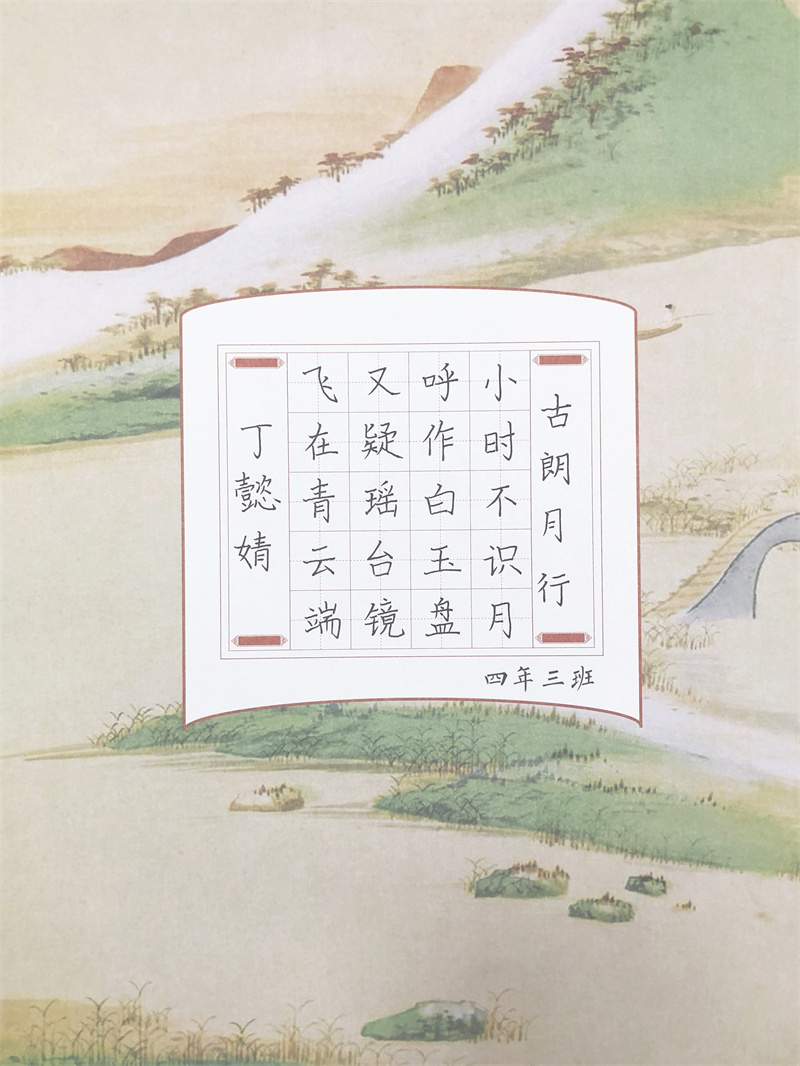 古朗月行
小时不识月
呼作白玉盘
又疑瑶台镜
飞在青云端
丁懿婧
四年三班